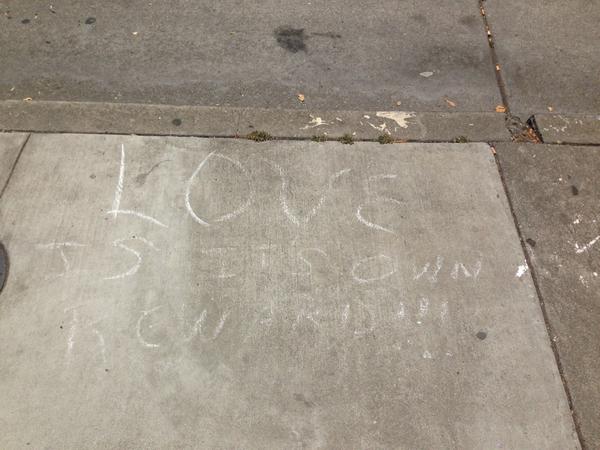 LOVE
IS ITS OWN
REWARD!!!